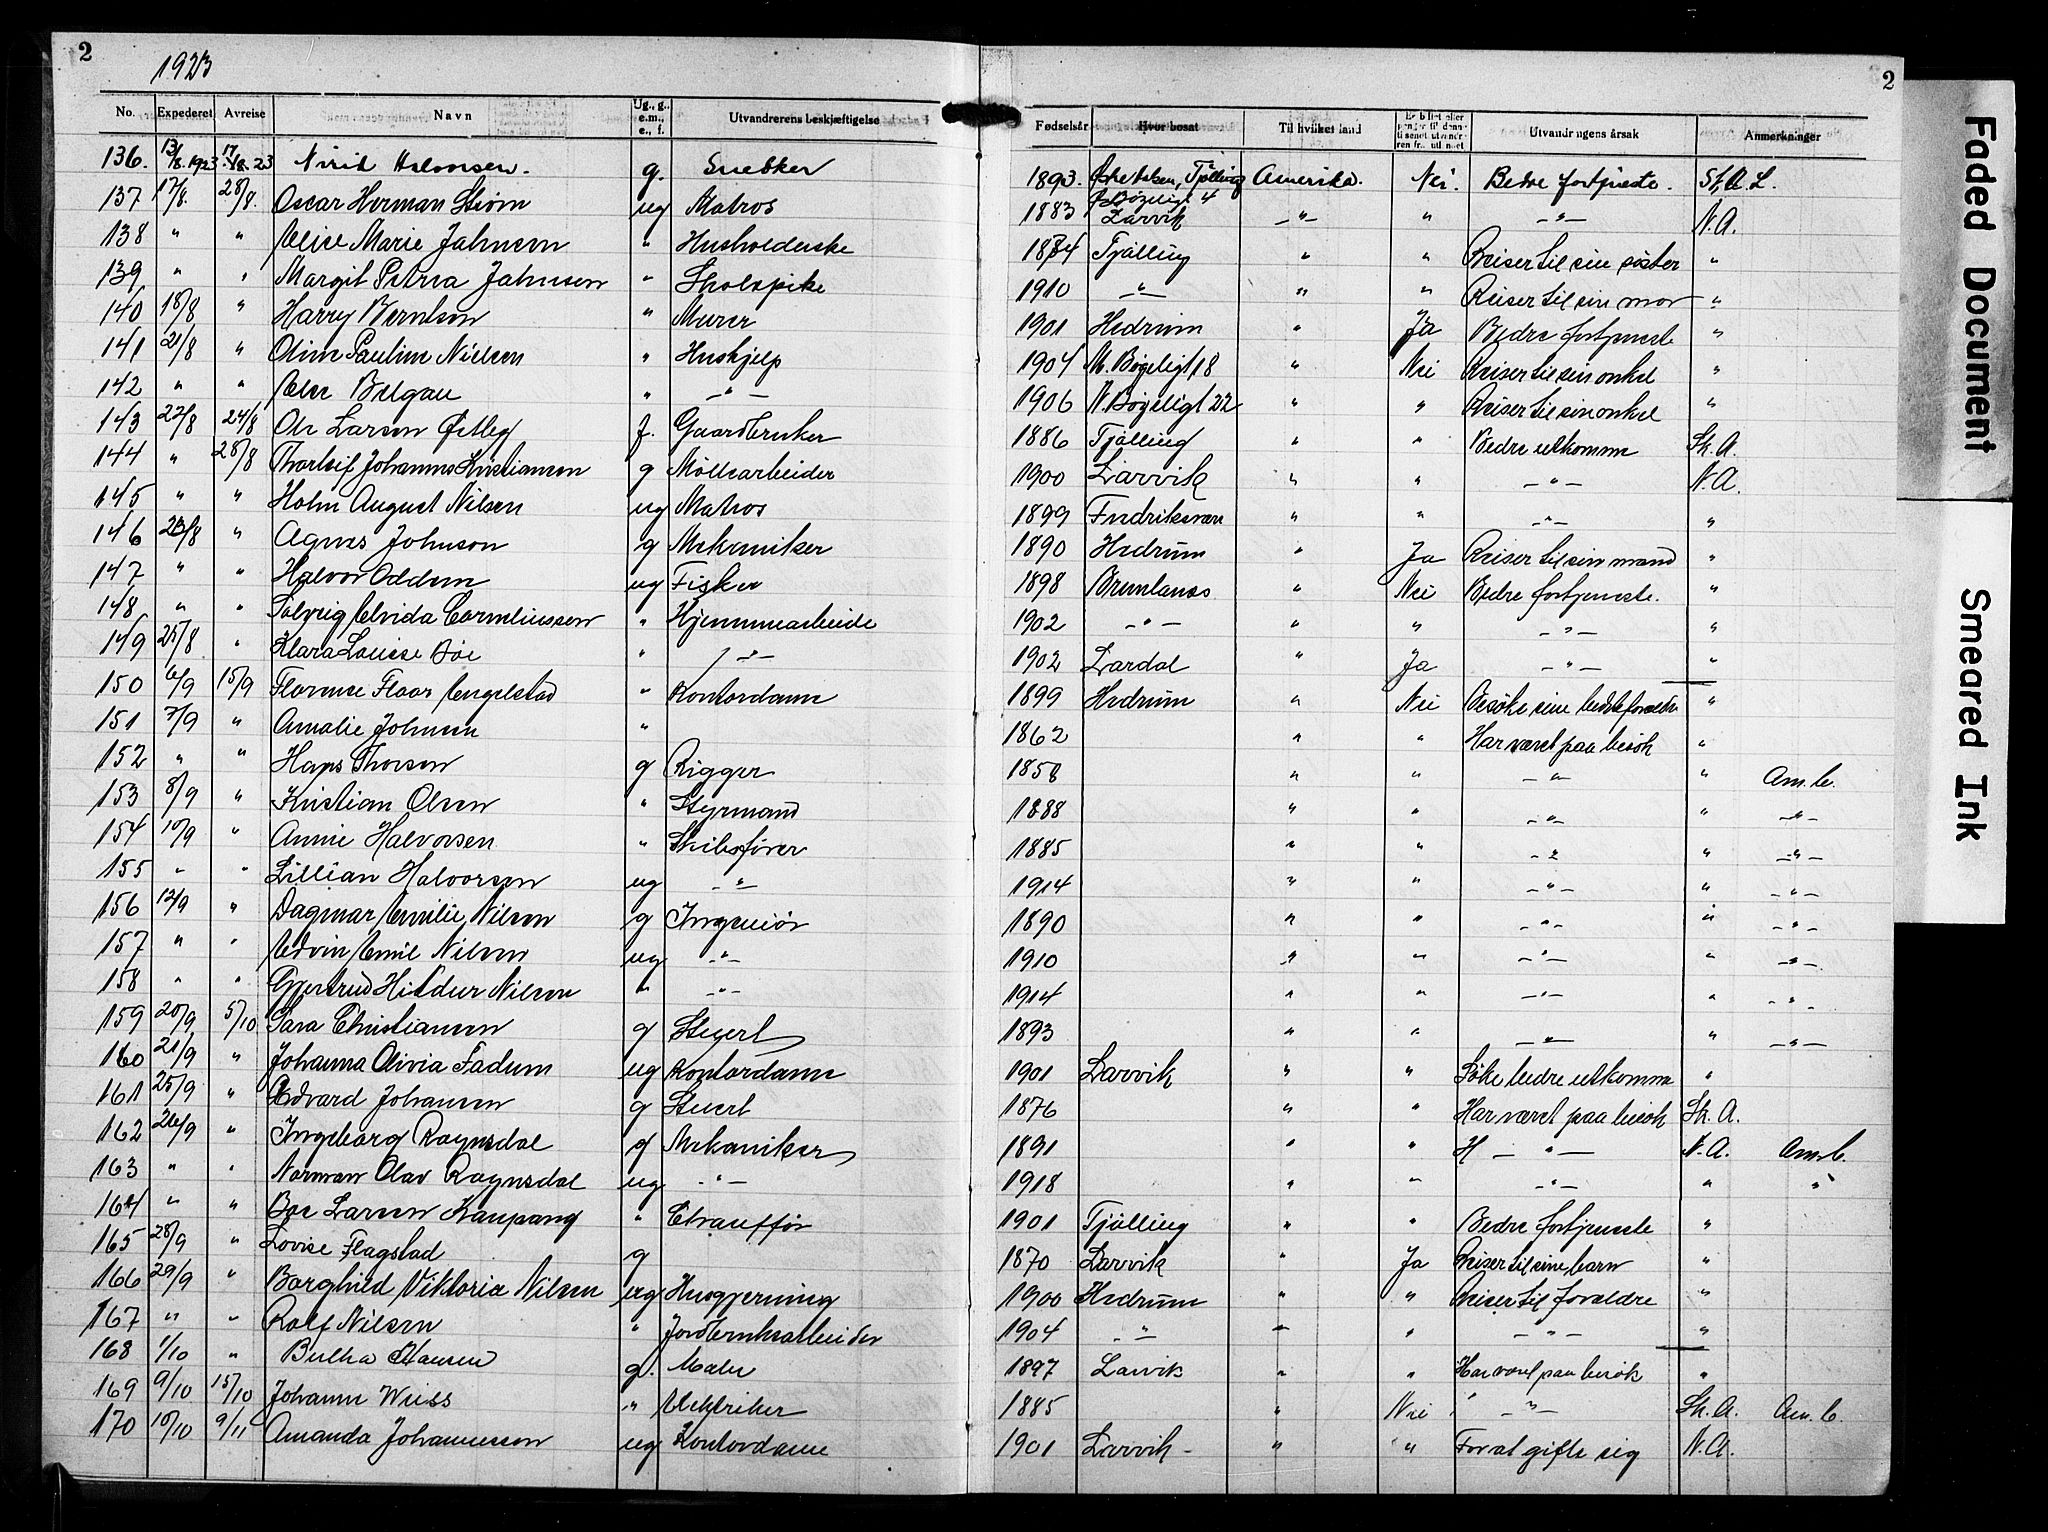 2
1923
2
No. Expederet Avreise Navn Ug., g., e.m., e., f. Utvandrerens beskjæftigelse Fødselsår Hvor bosat Til hvilket land Utvandringens årsak Anmerkninger
136. 13/8.1923 17/8.23 Halvorsen. g. Snedker 1893. Tjölling Amerika. Nei. Bedre fortjeneste. St. A. L.
137 17/8. 28/8. Oscar Herman Ström ug Matros 1883 Ö Bögeligt 4 Larvik —"— " —"— N.A.
138 " " Elise Marie Jahnsen " Husholderske 1874 Tjölling " " Reiser til sin söster "
139 " " Margit Petrea Jahnsen " Skolepike 1910 —"— " " Reiser til sin mor "
140 18/8 " Harry Berntson " Murer 1901 Hedrum " Ja Bedre fortjeneste "
141 21/8 " Oline Pauline Nielsen " Hushjelp 1904 M. Bögeligt 18 " Nei Reiser til sin onkel "
142 " " Else Belgau " —"— 1906 N. Bögeligt 22 " " Reiser til sin onkel "
143 22/8 24/8 Ole Larsen Östby f. Gaardbruker 1886 Tjölling " " Bedre utkomme Sk. A.
144 " 28/8 Thorleif Johannes Kristiansen g Möllearbeider 1900 Larvik " " —"— N.A.
145 " " Holm August Nilsen ug Matros 1899 Fredriksværn " " —"— "
146 23/8 " Agnes Johnson g Mekaniker 1890 Hedrum " Ja Reiser til sin mand "
147 " " Halvor Oddum ug Fisker 1898 Brunlanes " Nei Bedre fortjeneste. "
148 " " Solveig Elvida Corneliussen " Hjemmearbeide 1902 —"— " " —"— "
149 25/8 " Klara Louise Böe " —"— 1902 Lardal " Ja —"— "
150 6/9 15/9 Florense Floor Engelstad " Kontordame 1899 Hedrum " Nei Besöke sine bedsteforældre "
151 7/9 " Amalie Johnsen " 1862 " " Har været paa besök "
152 " " Hans Thorsen g Rigger 1858 " " —"— " Am. b.
153 8/9 " Kristian Olsen " Styrmand 1888 " " —"— " —"—
154 10/9 " Annie Halvorsen " Skibsförer 1885 " " —"— " —"—
155 " " Lillian Halvorsen ug —"— 1914 " " —"— " —"—
156 12/9 " Dagmar Emilie Nilsen g Ingeniör 1890 " " —"— " —"—
157 " " Edvin Emil Nilsen ug —"— 1910 " " —"— " —"—
158 " " Gjertrud Hildur Nilsen " —"— 1914 " " —"— " —"—
159 20/9 5/10 Sara Christiansen g Stuert 1893 " " —"— " —"—
160 21/9 " Johanna Olivia Fadum ug Kontordame 1901 Larvik " " Söke bedre utkomme "
161 25/9 " Edvard Johansen g Stuert 1876 " " Har været paa besök Sk. A.
162 26/9 " Ingeborg Ragnsdal g Mekaniker 1891 " " H —"— N.A. Am. b.
163 " " Norman Olav Ragnsdal ug —"— 1918 " " —"— " "
164 " " Boe Larsen Kaupang " Chaufför 1901 Tjölling " " Bedre fortjeneste "
165 28/9 " Lovise Flagstad g 1870 Larvik " Ja Reiser til sine barn "
166 29/9 " Borghild Viktoria Nilsen ug Husgjerning 1900 Hedrum " " Reiser til forældre "
167 " " Rolf Nilsen " Jordbruksarbeider 1904 —"— " " —"— "
168 1/10 " Hansen g. Maler 1897 Larvik " " Har været paa besök "
169 9/10 15/10 Johanne Weiss " Elektriker 1885 " Nei " —"— Sk. A. Am. b.
170 10/10 9/11 Amanda Johannesson ug Kontordame 1901 Larvik - " " For at gifte sig N.A.
Faded Document
Smeared Ink